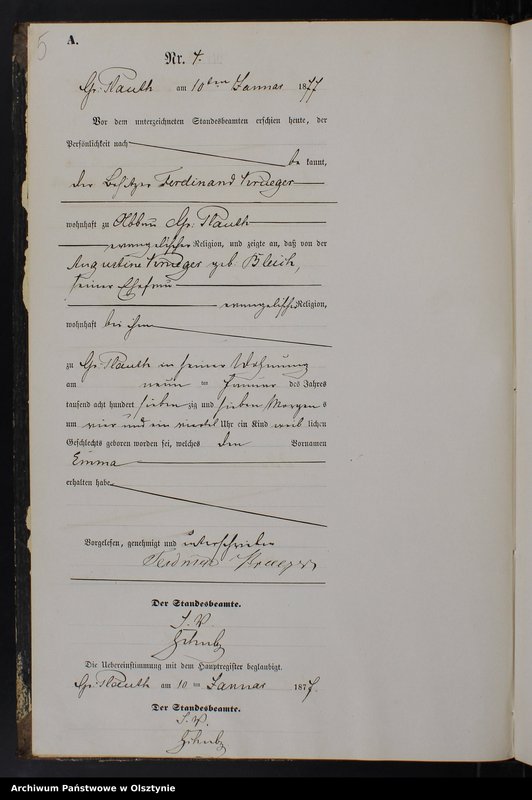 5
A.
Nr. 4.
Gr: Plauth am 10ten Januar 1877
Vor dem unterzeichneten Standesbeamten erschien heute, der
Persönlichkeit nach
be kannt,
der Besitzer Ferdinand Krueger
wohnhaft zu Abbau Gr: Plauth
evangelischer Religion, und zeigte an, daß von der
Augustine Krueger geb: Bleich,
seiner Ehefrau
evangelischer Religion,
wohnhaft bei ihm
zu Gr: Plauth in seiner Wohnung
am neun ten Januar des Jahres
tausend acht hundert sieben zig und sieben Morgens
um vier und ein viertel Uhr ein Kind weib lichen
Geschlechts geboren worden sei, welches den Vornamen
Emma
erhalten habe
Vorgelesen, genehmigt und unterschrieben
Ferdinand Krueger
Der Standesbeamte.
I. V.
Die Uebereinstimmung mit dem Hauptregister beglaubigt.
Gr: Plauth am 10 ten Januar 1877.
Der Standesbeamte.
I. V.
Archiwum Państwowe w Olsztynie